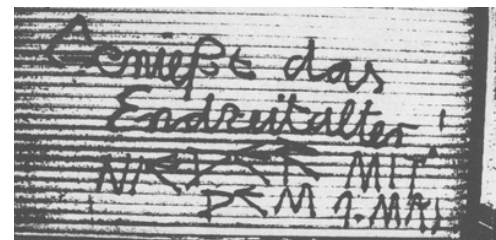 Genießt das
Endzeitalter!
NIEDER MIT
DEM 1. MAI